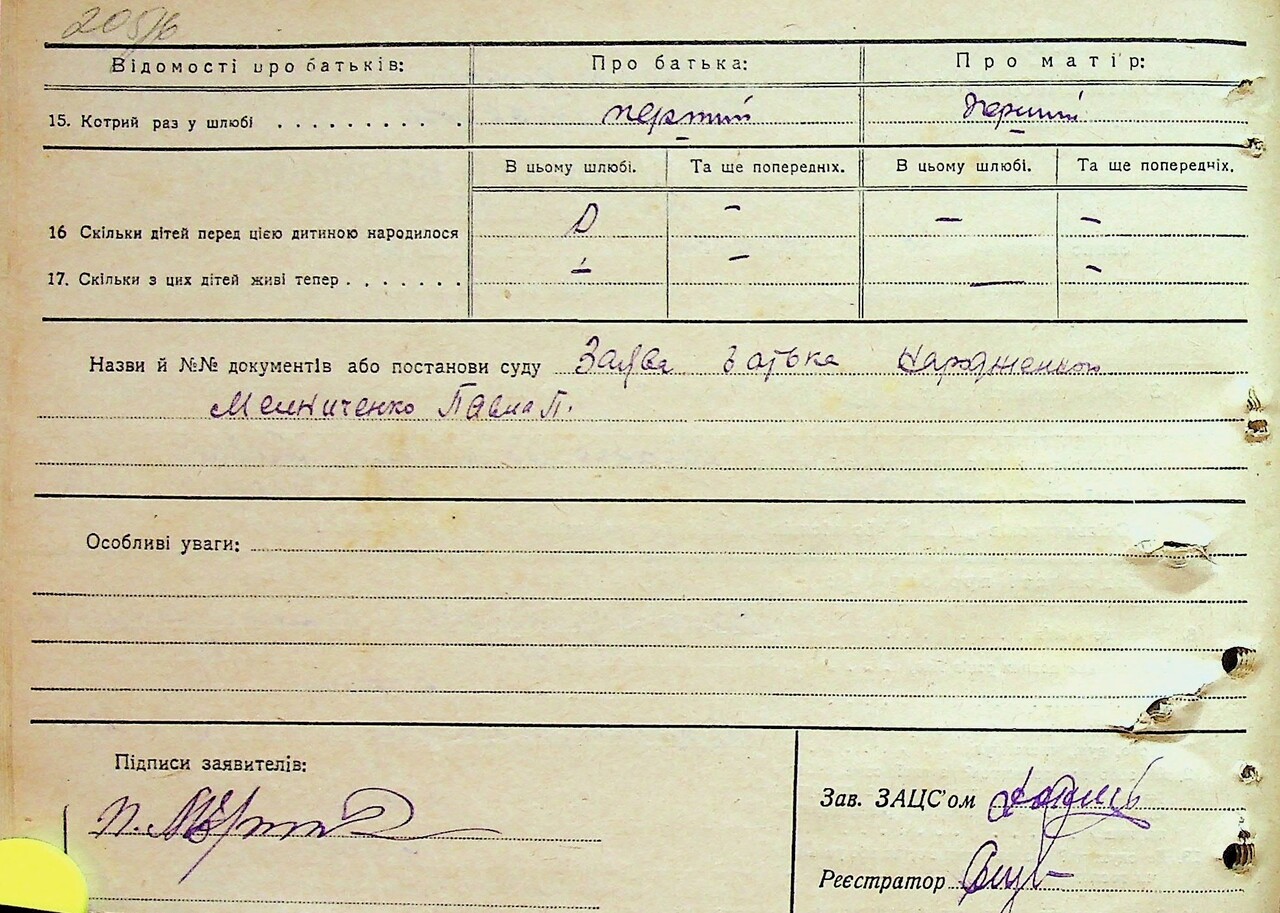 Відомості про батьків: Про батька: Про матір:
15. Котрий раз у шлюбі . . . . . . . . . . перший перший
В цьому шлюбі. Та ще попередніх. В цьому шлюбі. Та ще попередніх.
16 Скільки дітей перед цією дитиною народилося – – –
17. Скільки з цих дітей живі тепер . . . . . . . – – – –
Назви й №№ документів або постанови суду Заява батька
Мельниченко Павла П.
Особливі уваги:
Підписи заявителів:
Зав. ЗАЦС'ом
Реєстратор